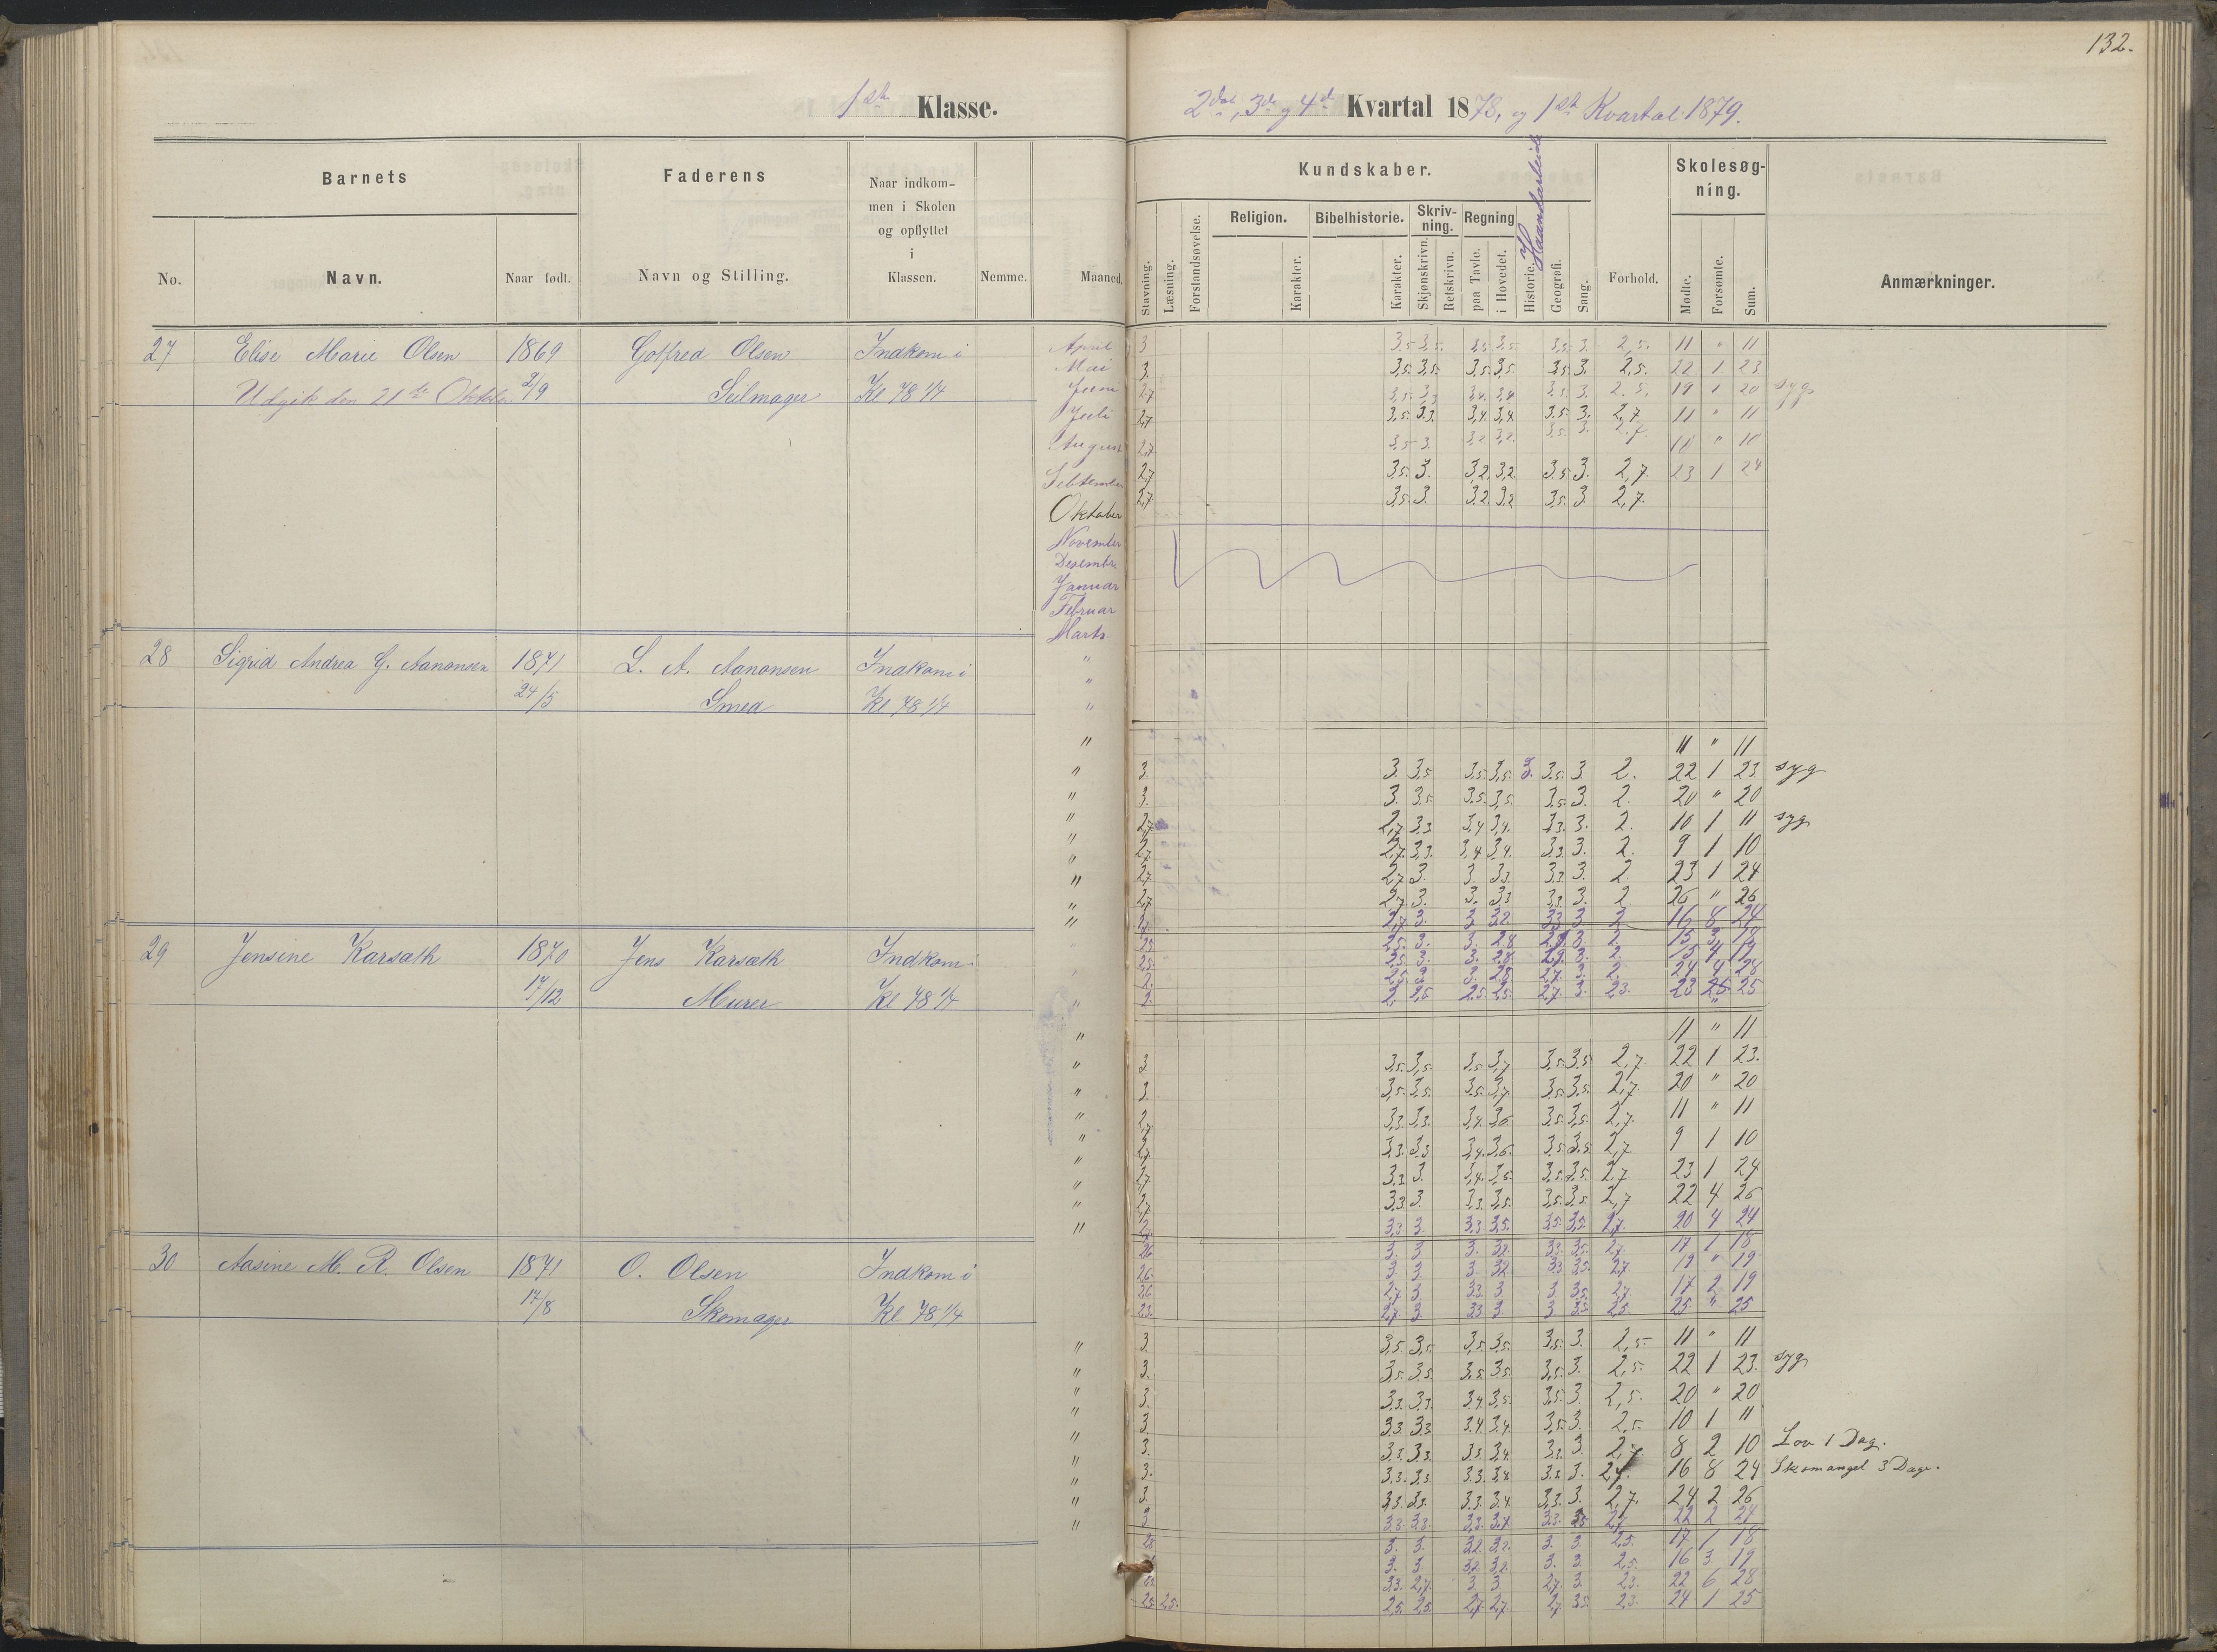 132.
1ste Klasse.
2det, 3de og 4de Kvartal 1878, og 1ste Kvartal 1879.
Barnets
Faderens
Naar indkom-
men i Skolen
og opflyttet
i
Klassen.
No.
Navn.
Naar født.
Navn og Stilling.
Nemme.
Maaned.
Kundskaber.
Skolesøg-
ning.
Religion.
Bibelhistorie.
Skriv-
ning.
Regning
Haandarbeide
Stavning.
Læsning.
Forstandsøvelse.
Karakter.
Karakter.
Skjønskrivn.
Retskrivn.
paa Tavle.
i Hovedet.
Historie.
Geografi.
Sang.
Forhold.
Mødte.
Forsømte.
Sum.
Anmærkninger.
27 Elise Marie Olsen 1869 Gotfred Olsen Indkom i April 3 3,5 3,5 3,5 3,5 3,5 3. 2,5. 11 " 11
Mai 3. 3,5 3,5 3,5 3,5 3,5 3. 2,5. 22 1 23
Udgik den 21de Oktober 2/9 Seilmager Kl 78 1/4 Juni 2,7 3,5 3,3 3,4 3,4 3,5 3. 2,5. 19 1 20 syg
Juli 2,7 3,5 3,3 3,4 3,4 3,5 3. 2,7 11 " 11
August 2,7 3,5 3. 3,2 3,2 3,5 3. 2,7 10 " 10
September 2,7 3,5 3. 3,2 3,2 3,5 3. 2,7. 23 1 24
Oktober 2,7 3,5 3. 3,2 3,2 3,5 3 2,7.
November
Desember
Januar
Februar
Marts
28 Sigrid Andrea G. Aanonsen 1871 L. A. Aanonsen Indkom i "
24/5 Smed Kl 78 1/4 "
" 11 " 11
" 3. 3. 3,5 3,5 3,5 3. 3,5 3 2. 22 1 23 syg
" 3. 3. 3,5 3,5 3,5 3,5 3. 2. 20 " 20
" 2,7 2,7 3,3 3,4 3,4 3,3 3. 2. 10 1 11 syg
" 2,7 2,7 3,3 3,4 3,4 3,3 3. 2. 9 1 10
" 2,7 2,7 3. 3. 3,3 3,3 3. 2. 23 1 24
" 2,7 2,7 3. 3. 3,3 3,3 3. 2 26 " 26
" 2,7 3. 3 3,2 3,3 3 2 16 8 24
29 Jensine Karsæth 1870 Jens Karsæth Indkom i
17/12 Murer Kl 78 1/4
2. 2 2,5 2,5 2,5 2,7 3. 2,3. 23 25 25
11 " 11
" 3 3,5 3,5 3,5 3,7 3,5 3,5 2,7 22 1 23.
" 3. 3,5 3,5 3,5 3,7 3,5 3,5 2,7. 20 " 20
" 2,7 3,3 3,3 3,4 3,6 3,5 3,5 2,7. 11 " 11
" 2,7 3,3 3,3 3,4 3,6 3,5 3,5 2,7 9 1 10
" 2,7 3,3 3. 3,4 3,5 3,5 3,5 2,7 23 1 24
" 2,7 3,3 3. 3,3 3,5 3,5 3,5 2,7 22 4 26
" 3,3 3. 3,3 3,5 3,5 3,5 2,7. 20 4 24
2,6 3. 3 3. 3,2 3,3 3,5 2,7 17 1 18
30 Aasine M. R. Olsen 1871 O. Olsen Indkom i 2,6. 3 3. 3. 3,2 3,3 3,5 2,7 19 " 19
2,6 2,7 3 3,3 3 3 3,5 2,7 17 2 19
17/8 Skomager Kl 78 1/4 2,3. 2,7 3. 3,3 3 3 3,5 2,5. 25 " 25
" 3. 3,5 3,5 3,5 3,5 3,5 3. 2,5- 11 " 11
" 3. 3,5 3,5 3,5 3,5 3,5 3. 2,5. 22 1 23. syg
" 3. 3,3 3,3 3,4 3,5 3,5 3 2,5. 20 " 20
" 3. 3,3 3,3 3,4 3,4 3,5 3. 2,5. 10 1 11
" 3. 3,3 3,3 3,5 3,4 3,3 3. 2,7 8 2 10 Lov 1 Dag.
" 3. 3,3 3,3 3,3 3,4 3,3 3. 2,7. 16 8 24 Skomangel 3 Dage.
" 3. 3,3 3,3 3,3 3,4 3,3 3. 2,7. 24 2 26
" 3. 3,3 3,3 3,3 3,4 3,3 3,5 2,7 22 2 24
2,8 3. 3. 3,2 3,2 3. 3. 2,5. 17 1 18
3. 3. 3,2 3,2 3. 3. 2,5. 16 3 19
3,3 2,7 3 3. 2,7 3. 2,3. 22 6 28
2,5 2,5. 2,5 2,5 2,7 2,7 2,7 3,5 2,3. 24 1 25